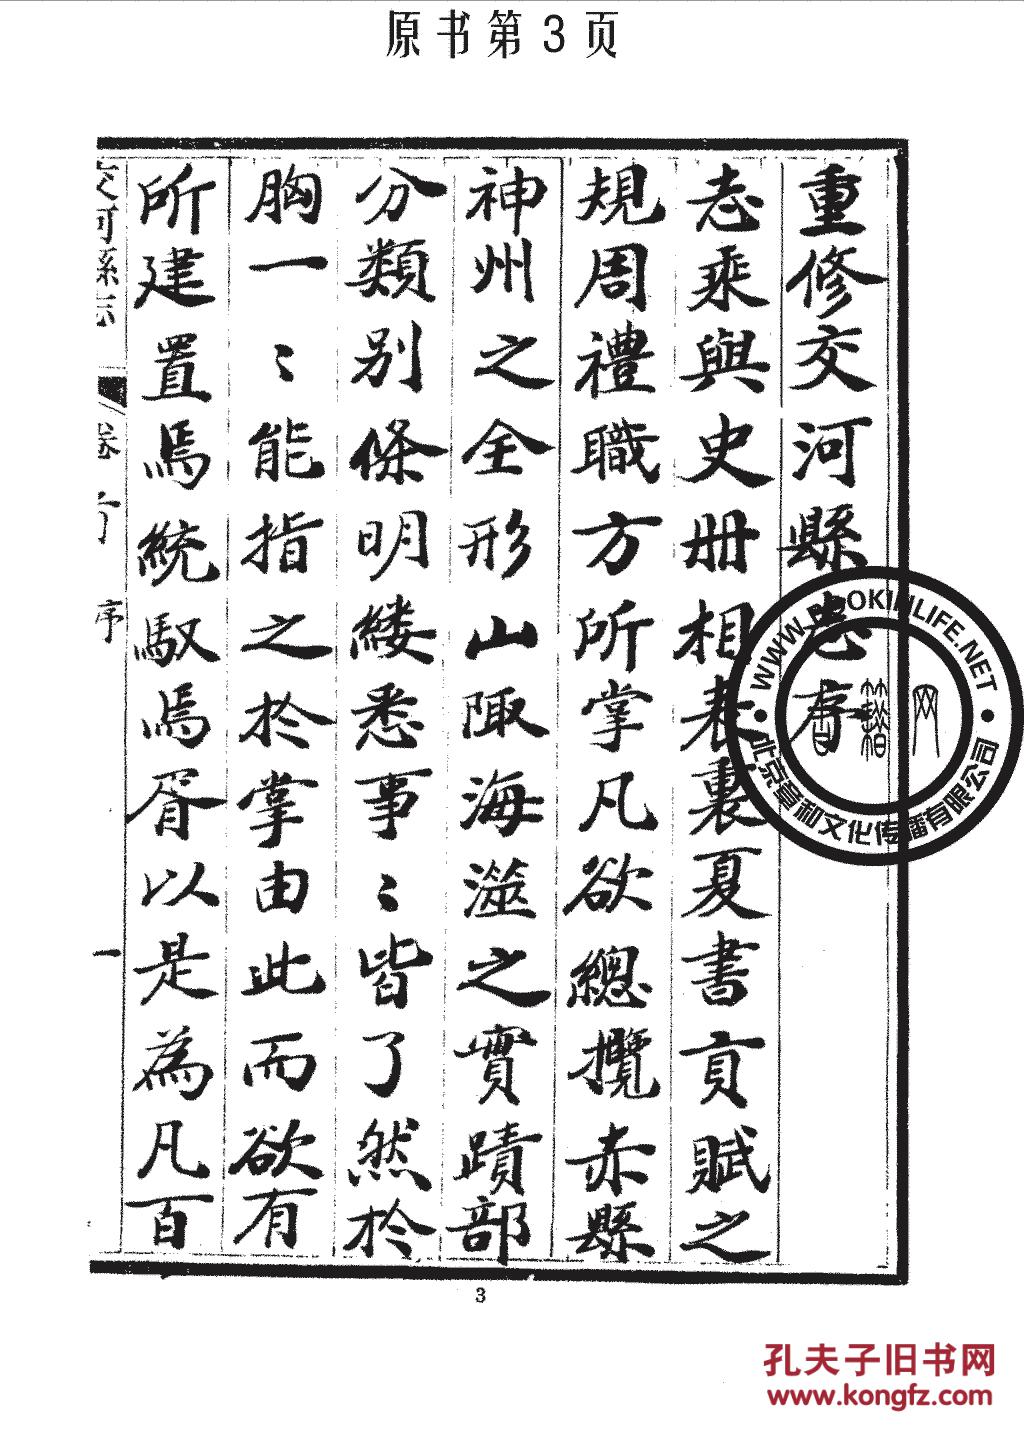 原书第3页
重修交河縣志序
志乘與史册相表裏夏書貢賦之
規周禮職方所掌凡欲總攬赤縣
神州之全形山陬海澨之實蹟部
分類别條明縷悉事〻皆了然於
胸一〻能指之於掌由此而欲有
所建置焉統馭焉胥以是為凡百
交河縣志
卷首
序
一
3
WWW.BOOKINLIFE.NET
北京章和文化传播有限公司
孔夫子旧书网
www.kongfz.com